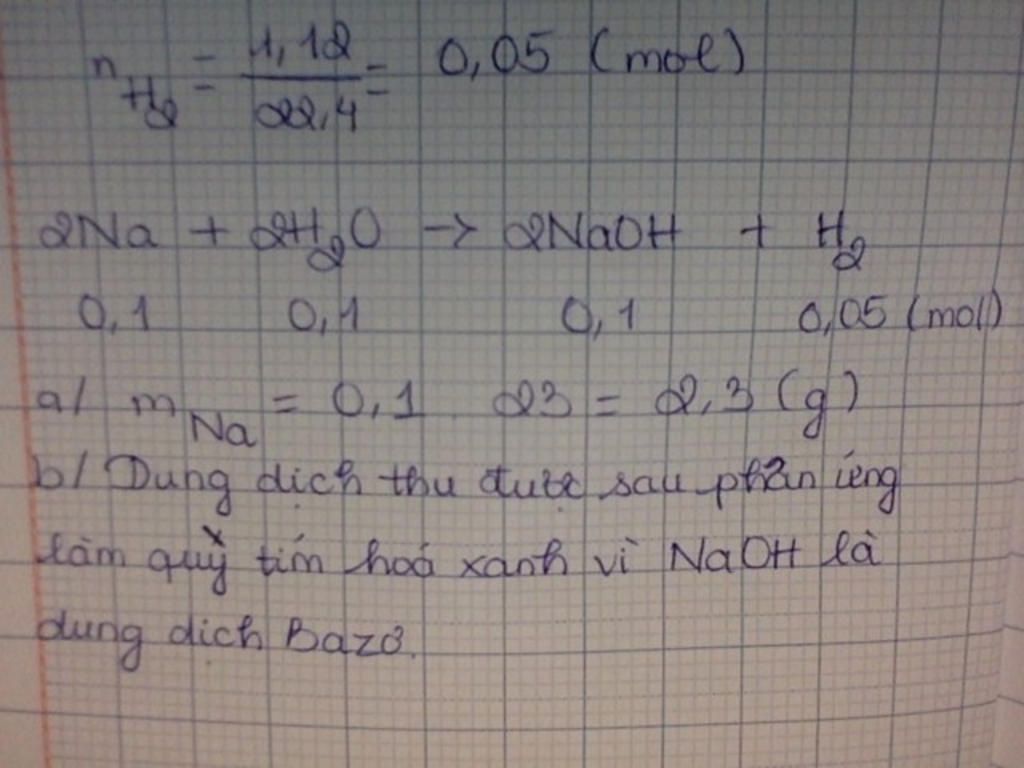 n H₂ = 1,12 / 22,4 = 0,05 (mol)
2Na + 2H₂O → 2NaOH + H₂
0,1 0,1 0,1 0,05 (mol)
a/ m Na = 0,1 . 23 = 2,3 (g)
b/ Dung dịch thu được sau phản ứng
làm quỳ tím hoá xanh vì NaOH là
dung dịch Bazơ.